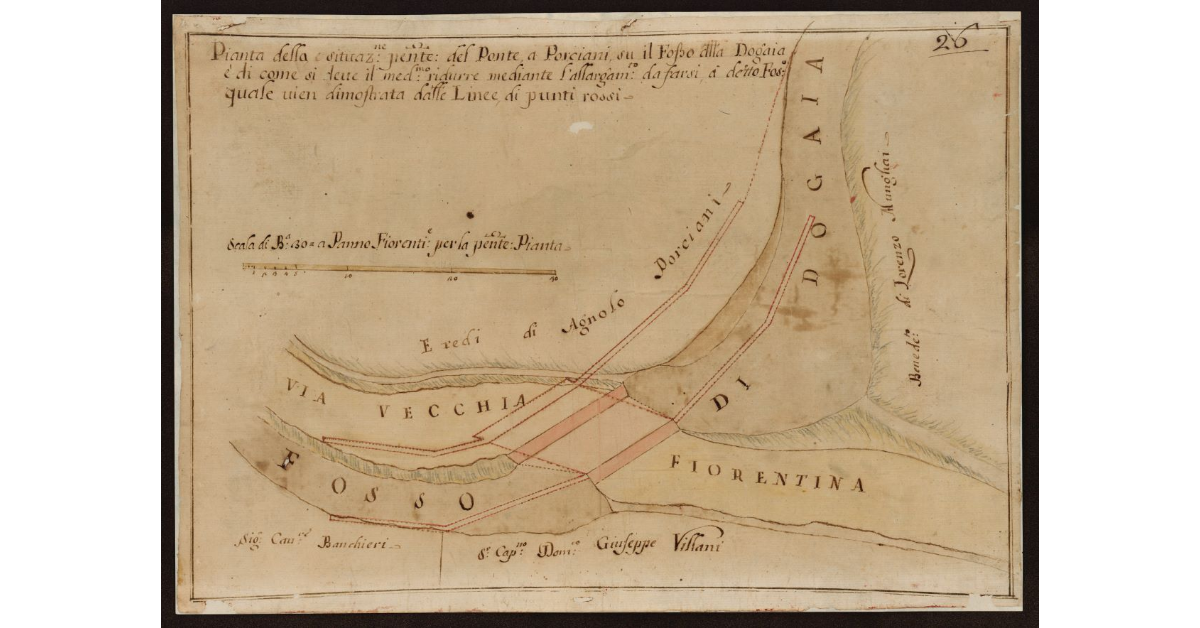 26
Pianta della e situaz:ne pñte: del Ponte, a Porciani, su il Fosso della Dogaia
e di come si deue il med:mo ridurre mediante l'allargam:to da farsi à detto Fos:o
quale uien dimostrata dalle Linee, di punti rossi
Scala di B:a 30 = a Panno Fiorenti:e per la pñte: Pianta
10
20
30
Eredi di Agnolo Porciani
Bened:to di Lorenzo Munghai
VIA VECCHIA FIORENTINA
FOSSO DI DOGAIA
Sig: Cau:re Banchieri
S:r Cap:no Dom:co Giuseppe Villani